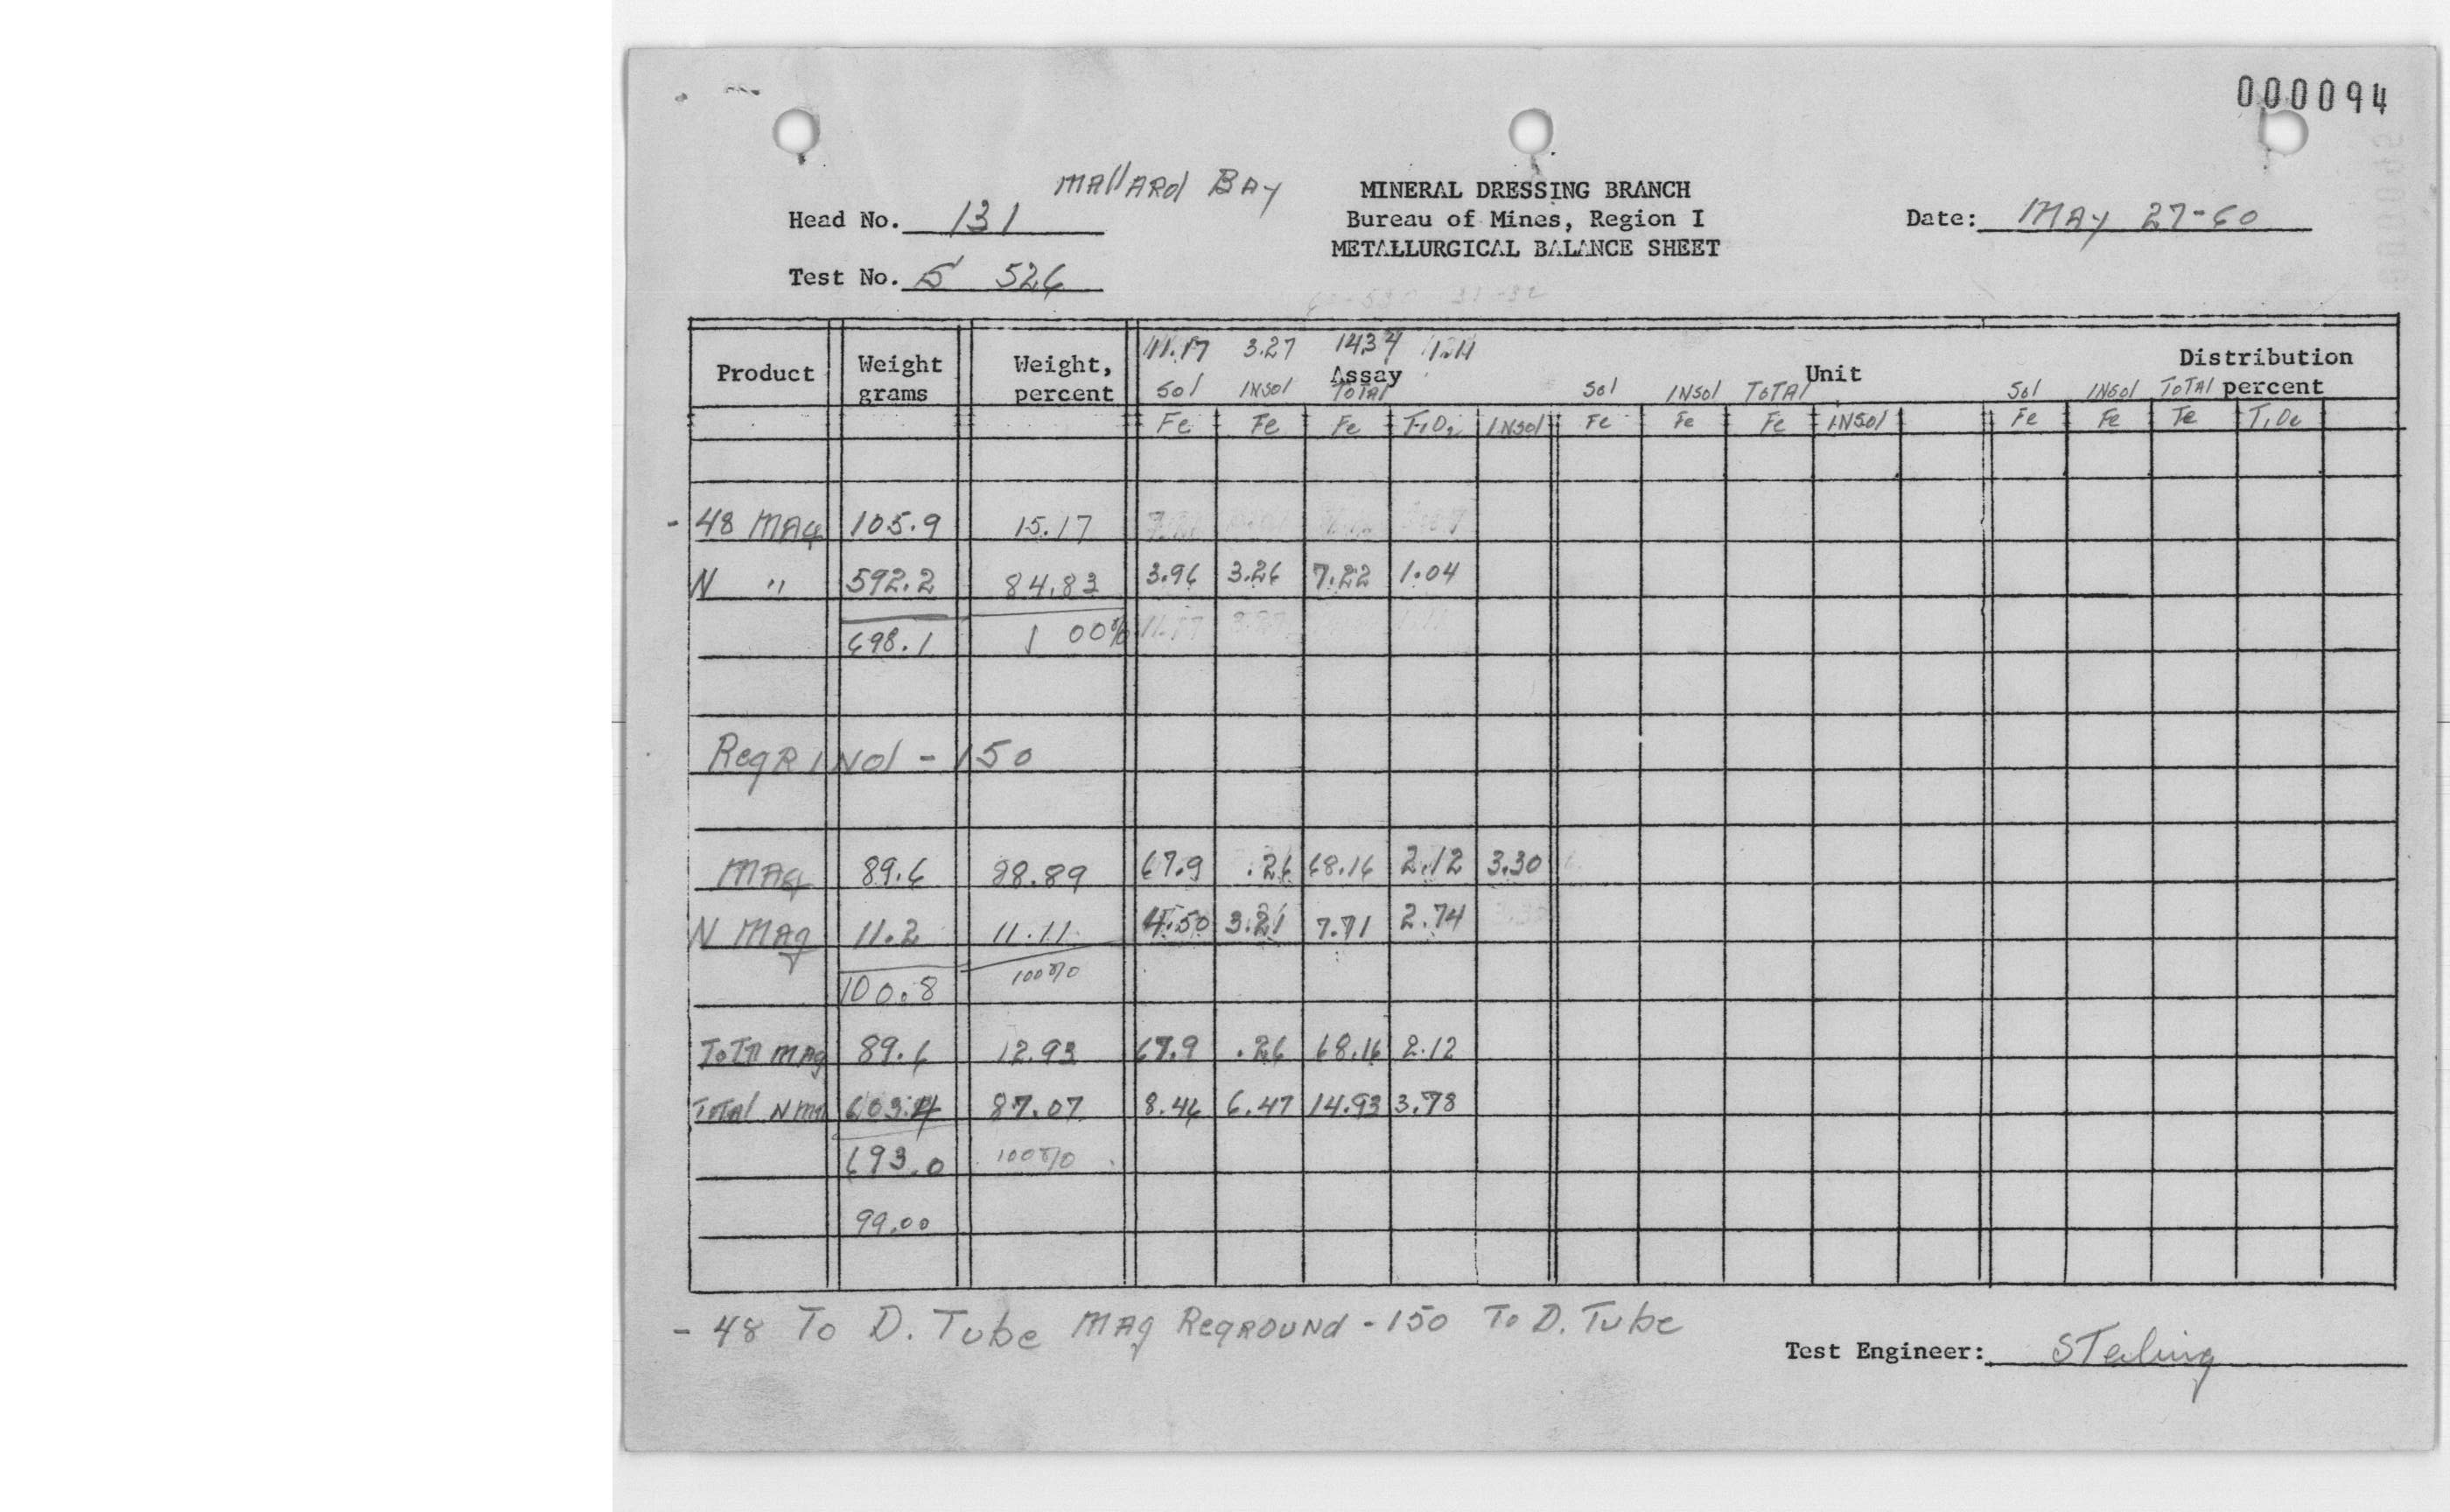 000094
Mallard Bay
MINERAL DRESSING BRANCH
Head No. 131
Bureau of Mines, Region I
Date: May 27-60
METALLURGICAL BALANCE SHEET
Test No. 5 526
11.17 3.27 1434 1.11
Product Weight grams Weight, percent Assay Unit Distribution percent
Sol INSol Total Sol INSol Total Sol INSol Total
Fe Fe Fe TiO2 INSol Fe Fe Fe INSol Fe Fe Fe TiO2
-48 Mag 105.9 15.17
N " 592.2 84.83 3.96 3.26 7.22 1.04
698.1 100%
Regrind -150
Mag 89.6 88.89 67.9 .26 68.16 2.12 3.30
N Mag 11.2 11.11 4.50 3.21 7.71 2.74
100.8 100%
Totl Mag 89.6 12.93 67.9 .26 68.16 2.12
Total N Mag 603.4 87.07 8.46 6.47 14.93 3.78
693.0 100%
99.00
-48 To D. Tube Mag Reground -150 To D. Tube
Test Engineer: Sterling